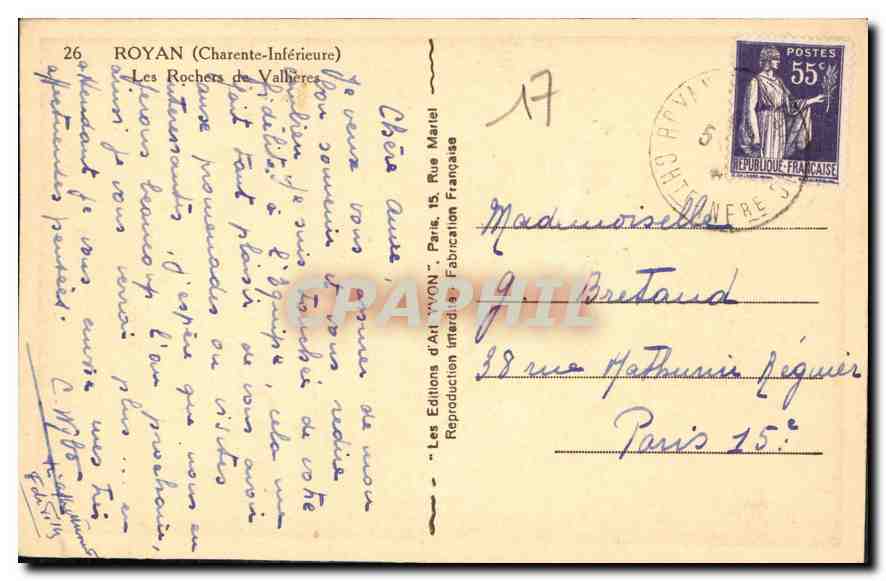 26 ROYAN (Charente-Inférieure)
Les Rochers de Vallières
Chère amie,
Je veux vous assurer de mon
bon souvenir et vous redire
combien je suis touchée de votre
fidélité à l'Equipe, cela me
fait tant plaisir de vous avoir
aux promenades ou visites
intéressantes, j'espère que nous en
ferons beaucoup l'an prochain,
ainsi je vous verrai plus... en
attendant je vous envoie mes très
affectueuses pensées.
"Les Editions d'Art YVON", Paris, 15, Rue Martel
Reproduction Interdite, Fabrication Française
17
ROYAN
5
CHTE INFRE
POSTES
55c
REPUBLIQUE-FRANÇAISE
Mademoiselle
G. Bretaud
38 rue Mathurin Régnier
Paris 15e
CPAPHIL